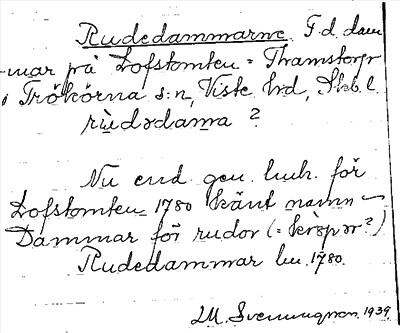 Rudedammarne. F.d. dam
-mar på Lofstomten = Thamstorp
i Trökörna s:n, Viste hrd, Skb. l.
rùdədama ?
Nu end. gen. huh. för
Lofstomten 1780 känt namn
Dammar för rudor (=
Rudedammar hu. 1780.
LM. Svenungsson. 1939